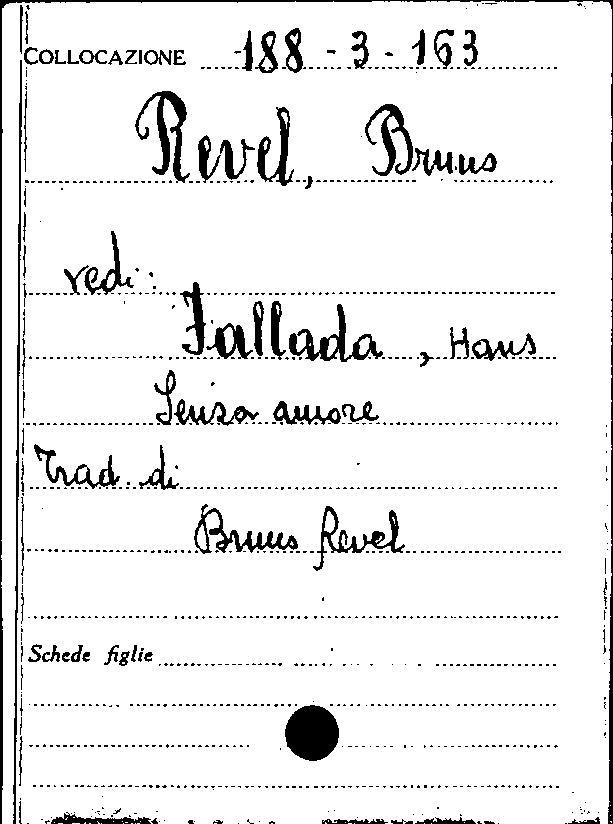 COLLOCAZIONE 188 - 3 - 163
Revel, Bruno
vedi:
Fallada, Hans
Senza amore
Trad. di
Bruno Revel
Schede figlie